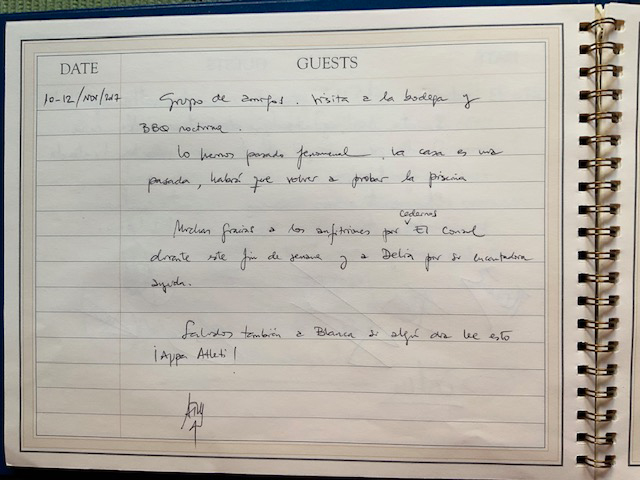 DATE GUESTS
10-12/NOV/2017 Grupo de amigos. Visita a la bodega y
BBQ nocturna.
Lo hemos pasado fenomenal. La casa es una
pasada, habrá que volver a probar la piscina
Muchas gracias a los anfitriones por cedernos El Consul
durante este fin de semana y a Delia por su encantadora
ayuda.
Saludos también a Blanca si algún día lee esto
¡Appa Atleti!